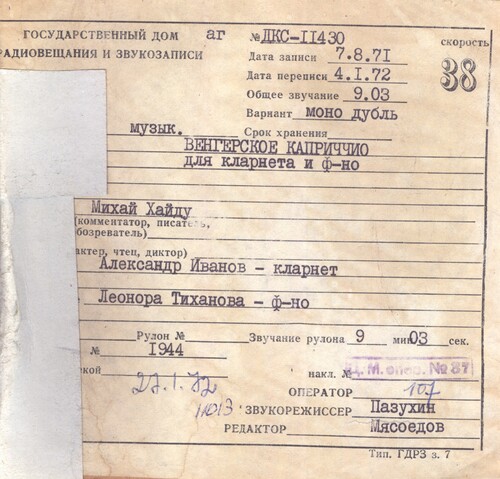 ГОСУДАРСТВЕННЫЙ ДОМ аг № ДКС-II430 скорость
РАДИОВЕЩАНИЯ И ЗВУКОЗАПИСИ Дата записи 7.8.71 38
Дата переписи 4.I.72
Общее звучание 9.03
Вариант моно дубль
музык. Срок хранения
ВЕНГЕРСКОЕ КАПРИЧЧИО
для кларнета и ф-но
Михай Хайду
(комментатор, писатель,
обозреватель)
актер, чтец, диктор)
Александр Иванов - кларнет
Леонора Тиханова - ф-но
Рулон № Звучание рулона 9 мин 03 сек.
№ I944
кой накл. № Д. М. опер. № 87
27.1.72 ОПЕРАТОР 107
11013 ЗВУКОРЕЖИССЕР Пазухин
РЕДАКТОР Мясоедов
Тип. ГДРЗ з. 7